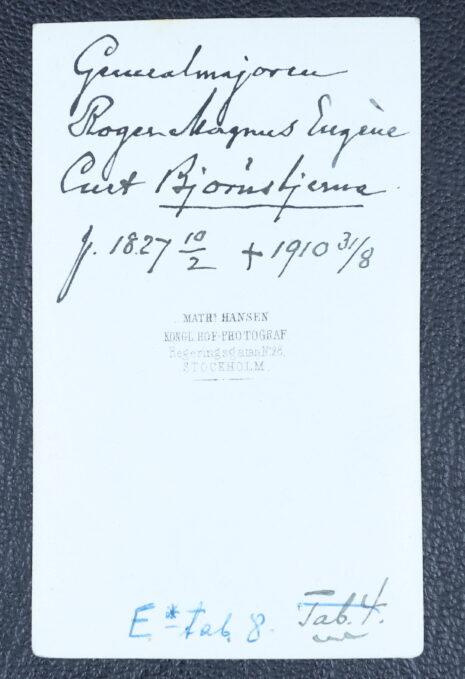 Generalmajoren
Roger Magnus Eugène
Curt Björnstjerna
f. 1827 10/2 + 1910 31/8
MATHS HANSEN
KONGL. HOF-PHOTOGRAF
Regeringsgatan No 28.
STOCKHOLM.
E.* tab. 8. Tab. 4.